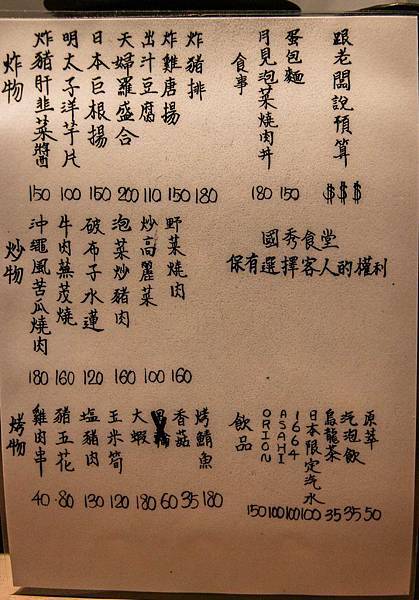 炸物
炸豬肝韭菜醬 150
明太子洋芋片 100
日本巨根揚 150
天婦羅盛合 200
出汁豆腐 110
炸雞唐揚 150
炸豬排 180
食事
月見泡菜燒肉丼 180
蛋包麵 150
跟老闆說預算 $$$
炒物
沖繩風苦瓜燒肉 180
牛肉蕪茂燒 160
破布子水蓮 120
泡菜炒豬肉 160
炒高麗菜 100
野菜燒肉 160
國秀食堂
保有選擇客人的權利
烤物
雞肉串 40
豬五花 80
塩豬肉 130
玉米筍 120
大蝦 180
60
香菇 35
烤鯖魚 180
飲品
ORION 150
ASAHI 100
1664 100
日本限定汽水 100
烏龍茶 35
汽泡飲 35
原萃 50